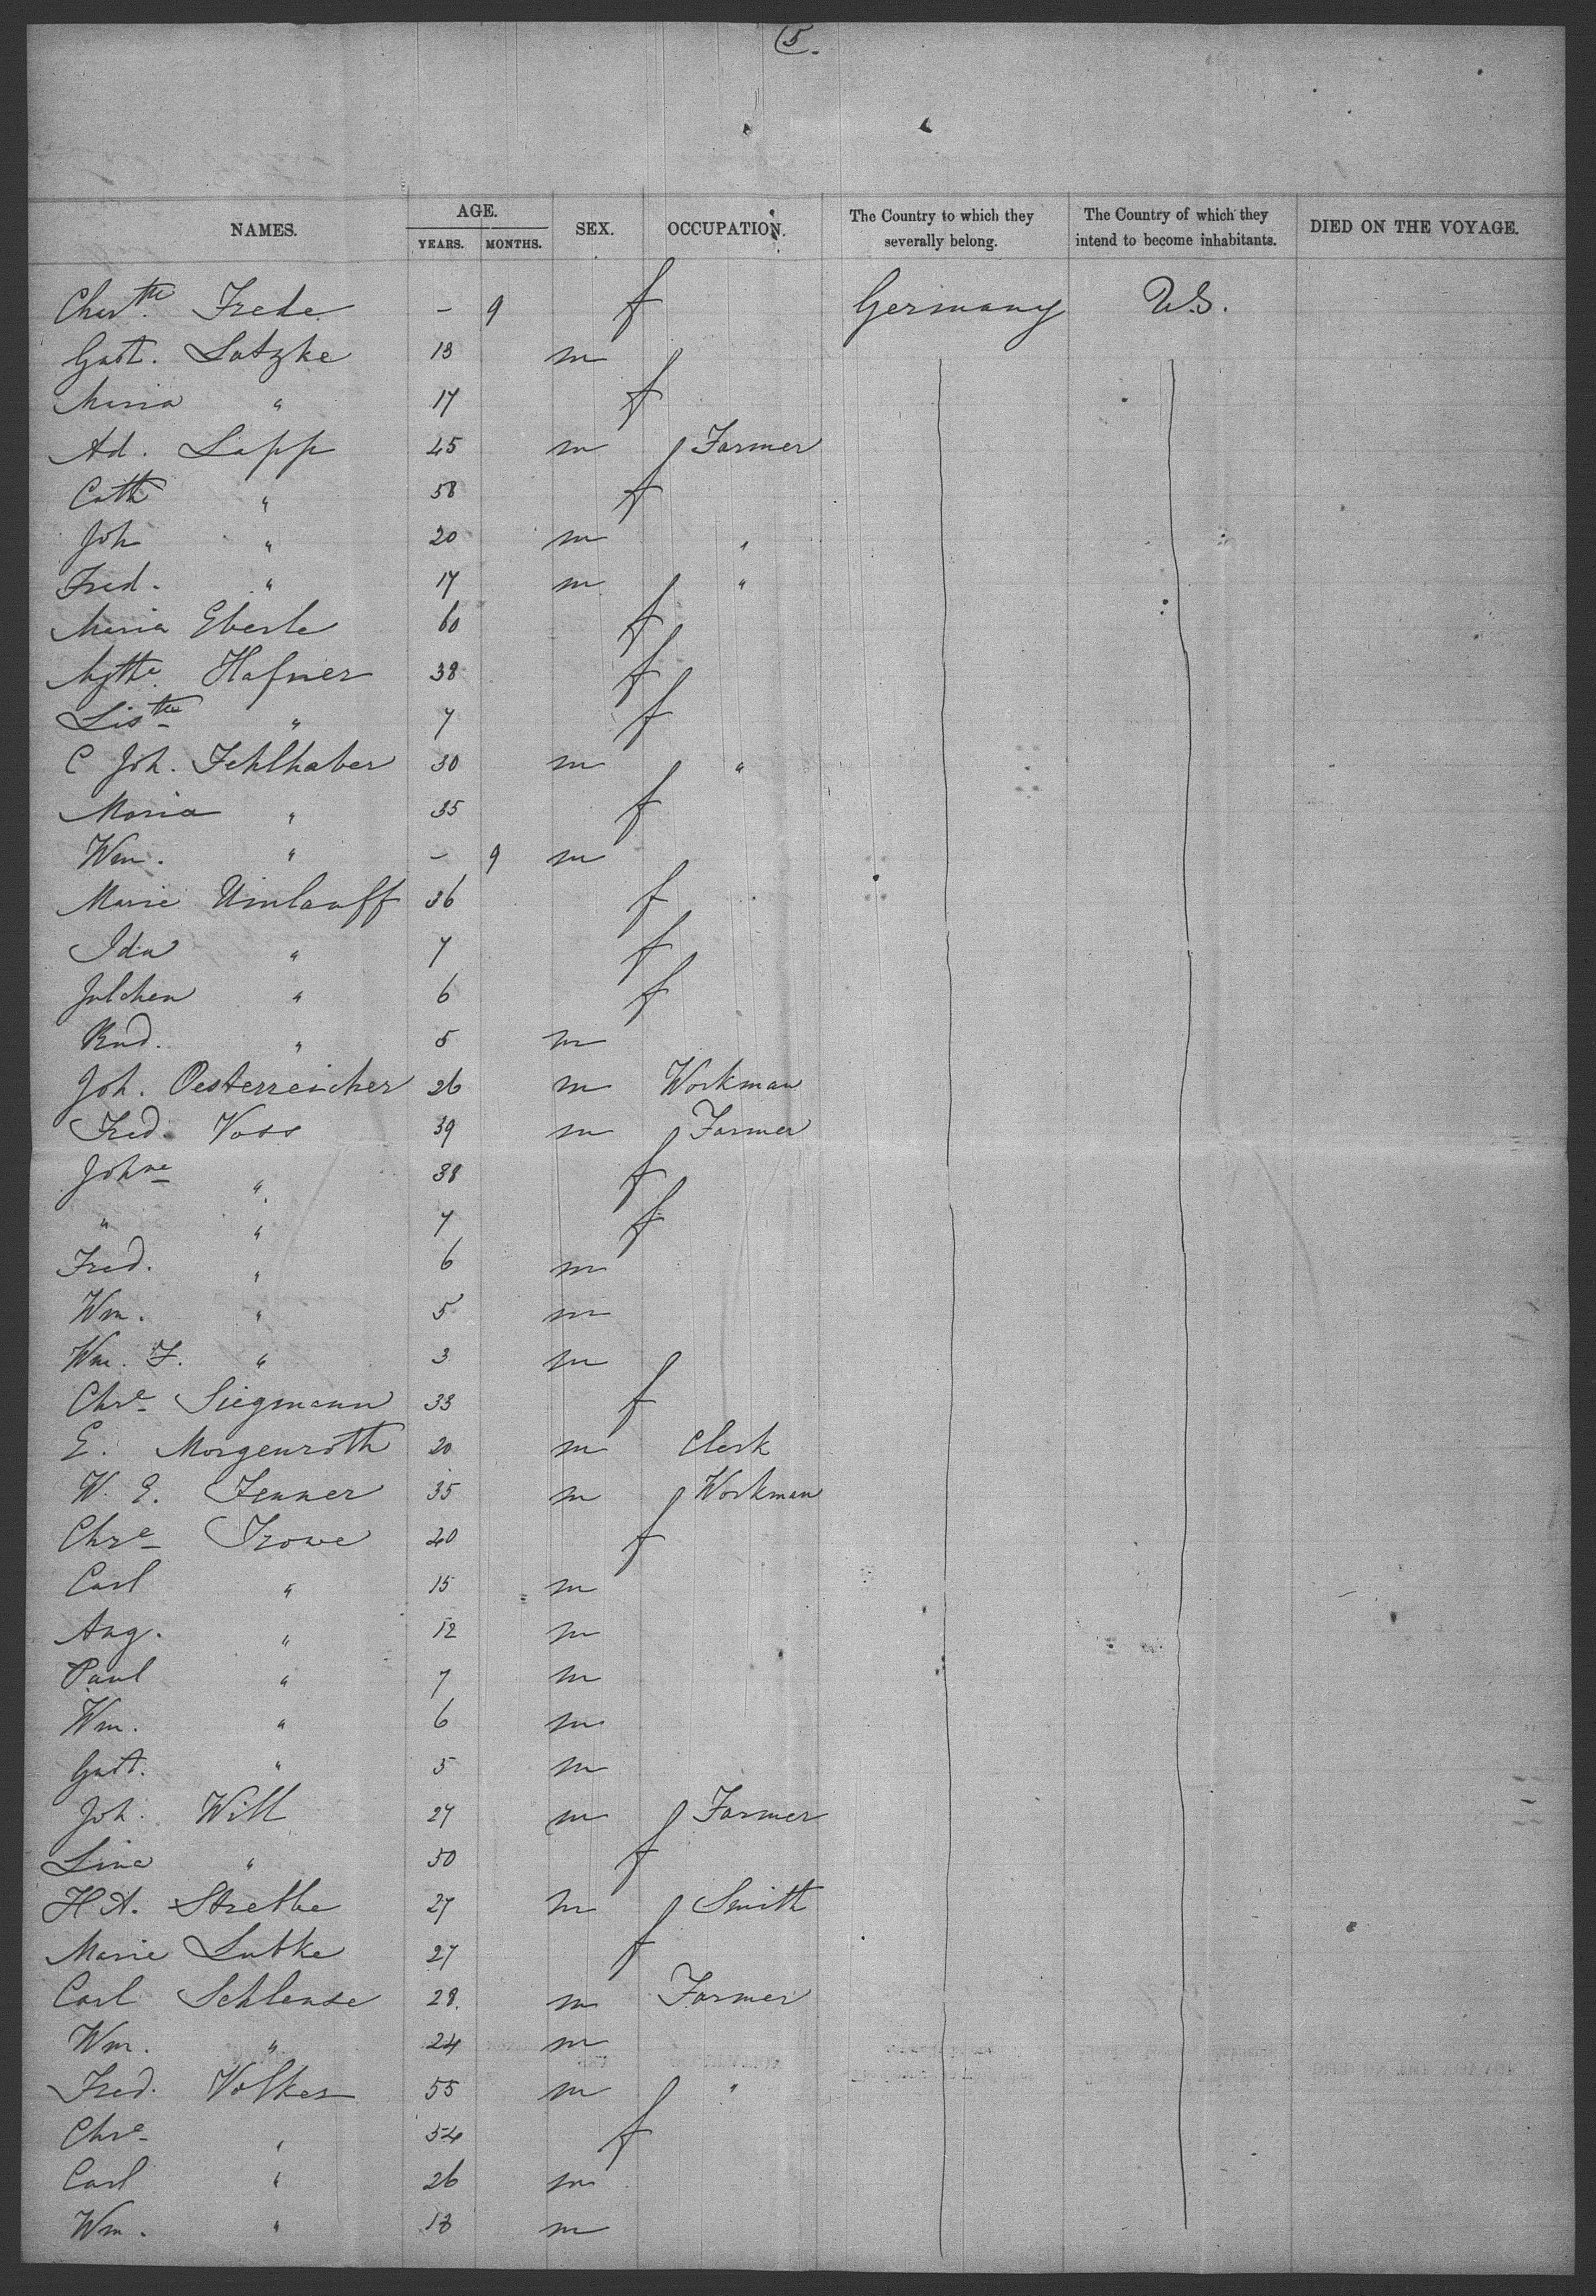 5.
NAMES. AGE. YEARS. MONTHS. SEX. OCCUPATION. The Country to which they severally belong. The Country of which they intend to become inhabitants. DIED ON THE VOYAGE.
Frede - 9 f Germany U.S.
Gust. Latzke 13 m
Maria " 17 f
Ad. Lapp 45 m Farmer
Cath " 58 f
Joh " 20 m "
Fred. " 17 m "
Maria Eberle 60 f
Hafner 38 f
" 7 f
C Joh. Fehlhaber 30 m "
Maria " 35 f
Wm. " - 9 m
Marie Umlauff 36 f
Ida " 7 f
Julchen " 6 f
Rud. " 5 m
Joh. Oesterreicher 26 m Workman
Fred. Voss 39 m Farmer
Johne " 38 f
" " 7 f
Fred. " 6 m
Wm. " 5 m
Wm. F. " 3 m
Chre Siegmann 33 f
E. Morgenroth 20 m Clerk
W. E. Fenner 35 m Workman
Chre Trowe 40 f
Carl " 15 m
Aug. " 12 m
Paul " 7 m
Wm. " 6 m
Gust. " 5 m
Joh. Will 27 m Farmer
Lina " 50 f
H A. Strethe 27 m Smith
Marie Lutke 27 f
Carl Schlense 28. m Farmer
Wm. " 24 m
Fred. Volker 55 m "
Chre " 54 f
Carl " 26 m
Wm. " 18 m